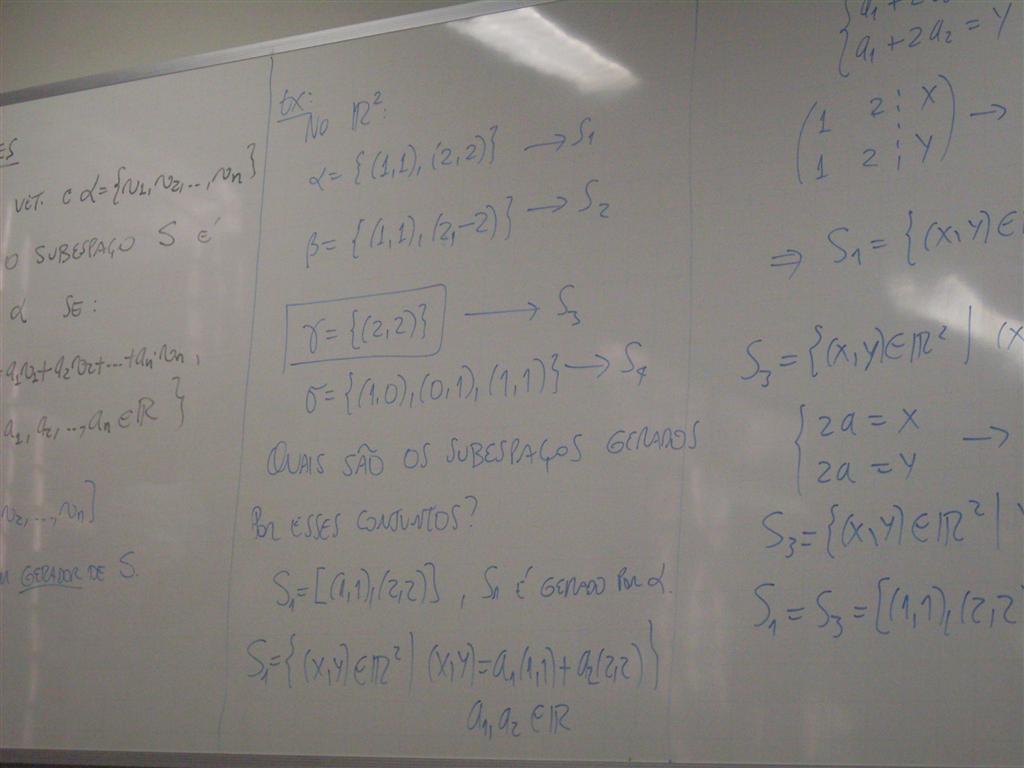 ES
VET. E α={v1,v2,...,vn}
O SUBESPAÇO S É
α SE:
a1v1+a2v2+...+an.vn,
a1, a2, ..., an ∈ ℝ }
v2,...,vn]
GERADOR DE S.
EX:
NO ℝ²:
α = {(1,1),(2,2)} → S1
β = {(1,1),(2,-2)} → S2
γ = {(2,2)} → S3
σ = {(1,0),(0,1),(1,1)} → S4
QUAIS SÃO OS SUBESPAÇOS GERADOS
POR ESSES CONJUNTOS?
S1 = [(1,1),(2,2)], S1 É GERADO POR α.
S1 = {(x,y)∈ℝ² | (x,y)=a1(1,1)+a2(2,2)}
a1, a2 ∈ ℝ
{ a1 + 2
{ a1 + 2a2 = y
( 1 2 ⋮ x ) →
( 1 2 ⋮ y )
⇒ S1 = {(x,y)∈
S3 = {(x,y)∈ℝ² | (x
{ 2a = x →
{ 2a = y
S3 = {(x,y)∈ℝ² |
S1 = S3 = [(1,1),(2,2